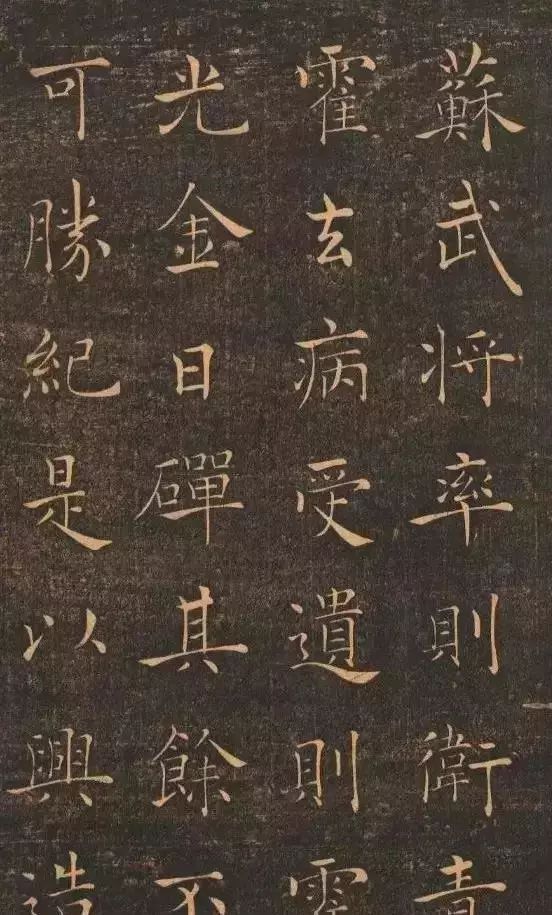 蘇武将率則衛青
霍去病受遺則霍
光金日磾其餘不
可勝紀是以興造